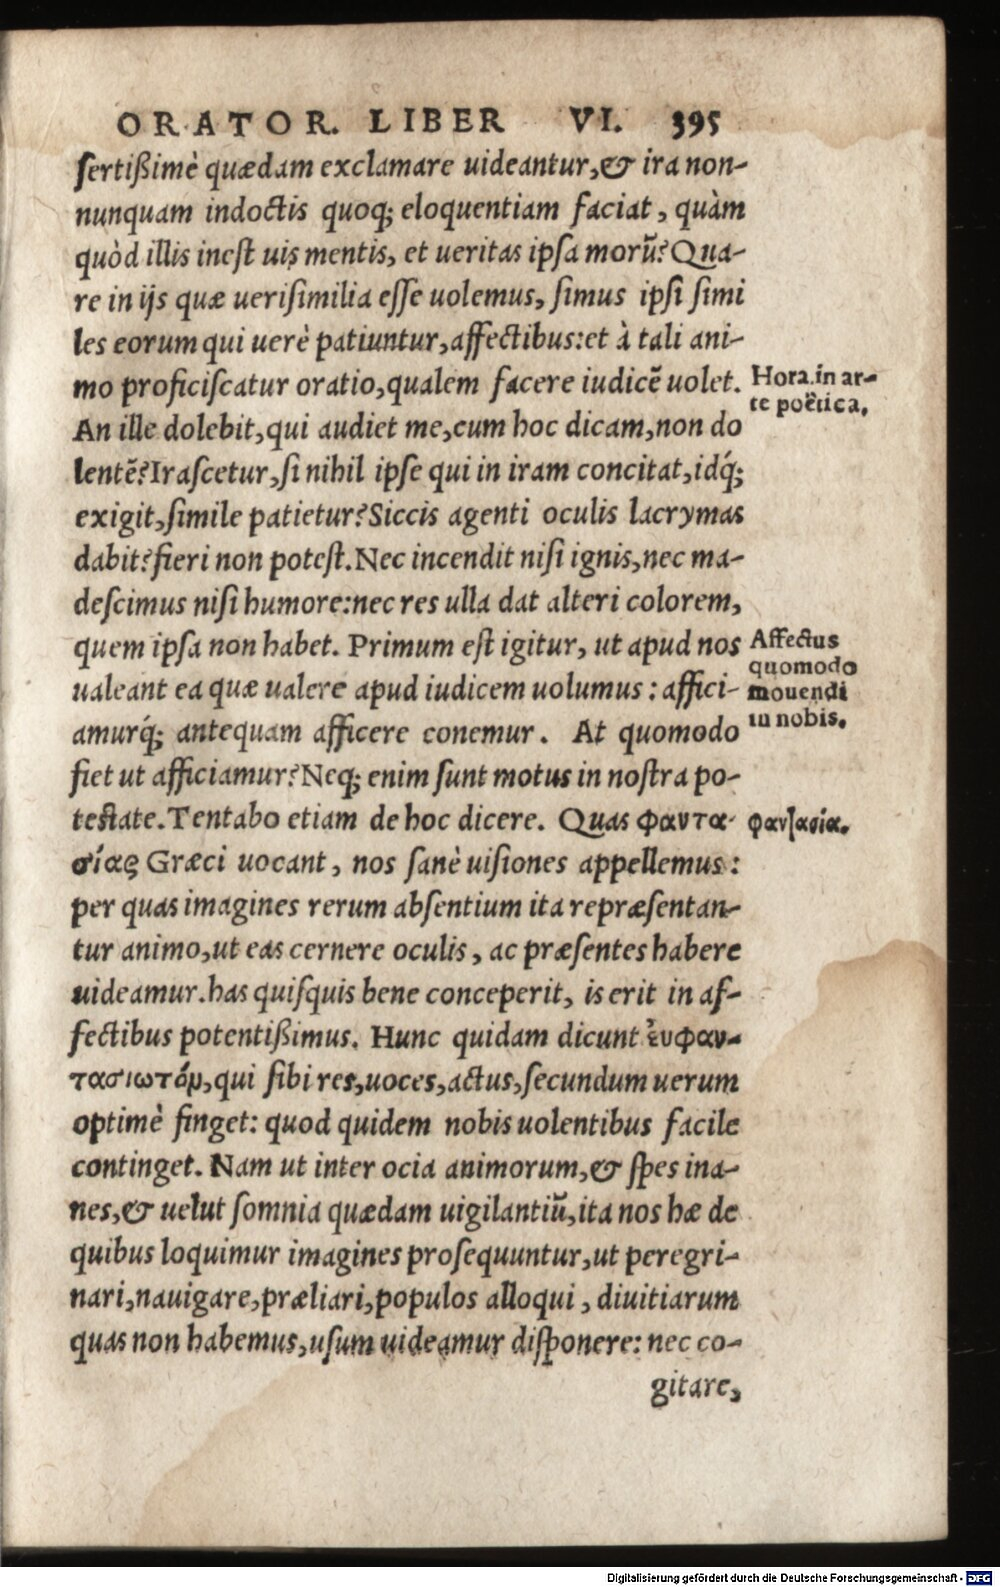 ORATOR. LIBER VI. 395
sertißimè quædam exclamare uideantur, & ira non-
nunquam indoctis quoq; eloquentiam faciat, quàm
quòd illis inest uis mentis, et ueritas ipsa morũ? Qua-
re in ijs quæ uerisimilia esse uolemus, simus ipsi simi
les eorum qui uerè patiuntur, affectibus: et à tali ani-
mo proficiscatur oratio, qualem facere iudicẽ uolet.
Hora. in ar-
te poëtica.
An ille dolebit, qui audiet me, cum hoc dicam, non do
lentẽ? Irascetur, si nihil ipse qui in iram concitat, idq́;
exigit, simile patietur? Siccis agenti oculis lacrymas
dabit? fieri non potest. Nec incendit nisi ignis, nec ma-
descimus nisi humore: nec res ulla dat alteri colorem,
quem ipsa non habet. Primum est igitur, ut apud nos
ualeant ea quæ ualere apud iudicem uolumus: affici-
amurq́; antequam afficere conemur. At quomodo
Affectus
quomodo
mouendi
in nobis.
fiet ut afficiamur? Neq; enim sunt motus in nostra po-
testate. Tentabo etiam de hoc dicere. Quas φαντα-
φαντασία.
σίας Græci uocant, nos sanè uisiones appellemus:
per quas imagines rerum absentium ita repræsentan-
tur animo, ut eas cernere oculis, ac præsentes habere
uideamur. has quisquis bene conceperit, is erit in af-
fectibus potentißimus. Hunc quidam dicunt ἐυφαν-
τασιωτόν, qui sibi res, uoces, actus, secundum uerum
optimè finget: quod quidem nobis uolentibus facile
continget. Nam ut inter ocia animorum, & spes ina-
nes, & uelut somnia quædam uigilantiũ, ita nos hæ de
quibus loquimur imagines prosequuntur, ut peregri-
nari, nauigare, præliari, populos alloqui, diuitiarum
quas non habemus, usum uideamur disponere: nec co-
gitare,
Digitalisierung gefördert durch die Deutsche Forschungsgemeinschaft - DFG